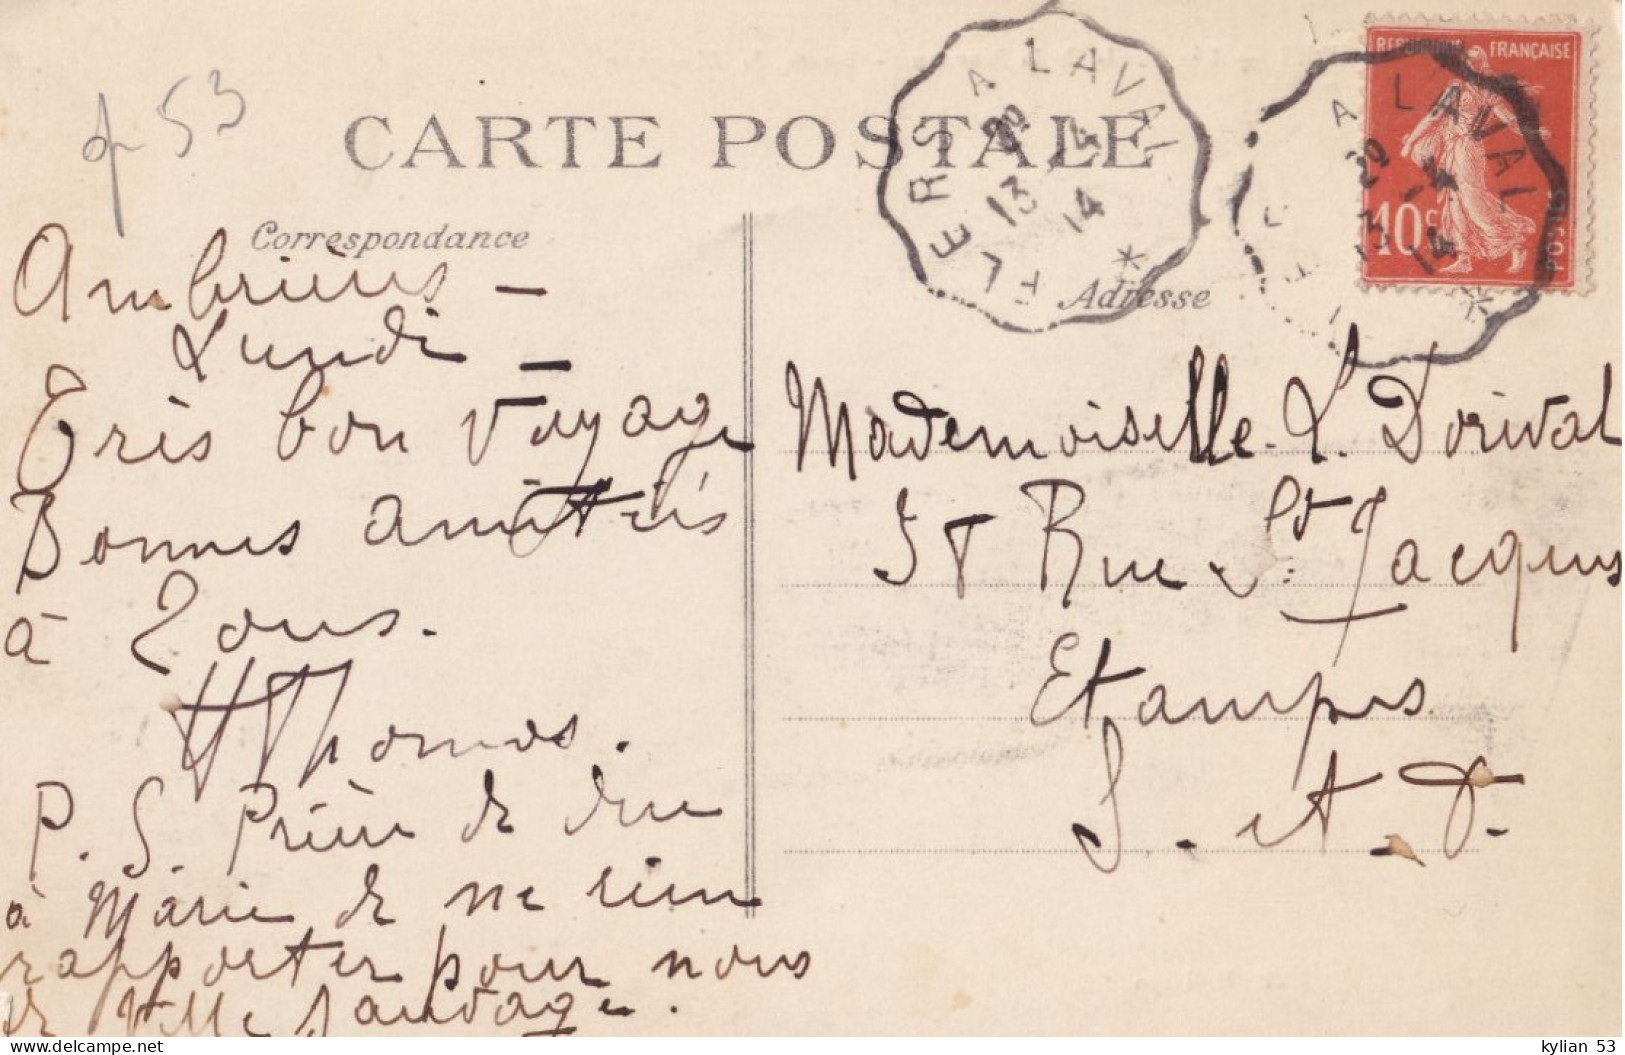 qr 53
CARTE POSTALE
Correspondance
Ambrières –
Lundi –
Très bon voyage
Bonnes amitiés
à Tous.
H Thomas.
P. S. Prière de dire
à Marie de ne rien
rapporter pour nous
de Ville Sauvage.
FLERS A LAVAL
13 4
14
REPUBLIQUE FRANÇAISE
10c
POSTES
A LAVAL
14
Adresse
Mademoiselle L. Dorival
Rue St Jacques
Etampes
S. et O.
kylian 53